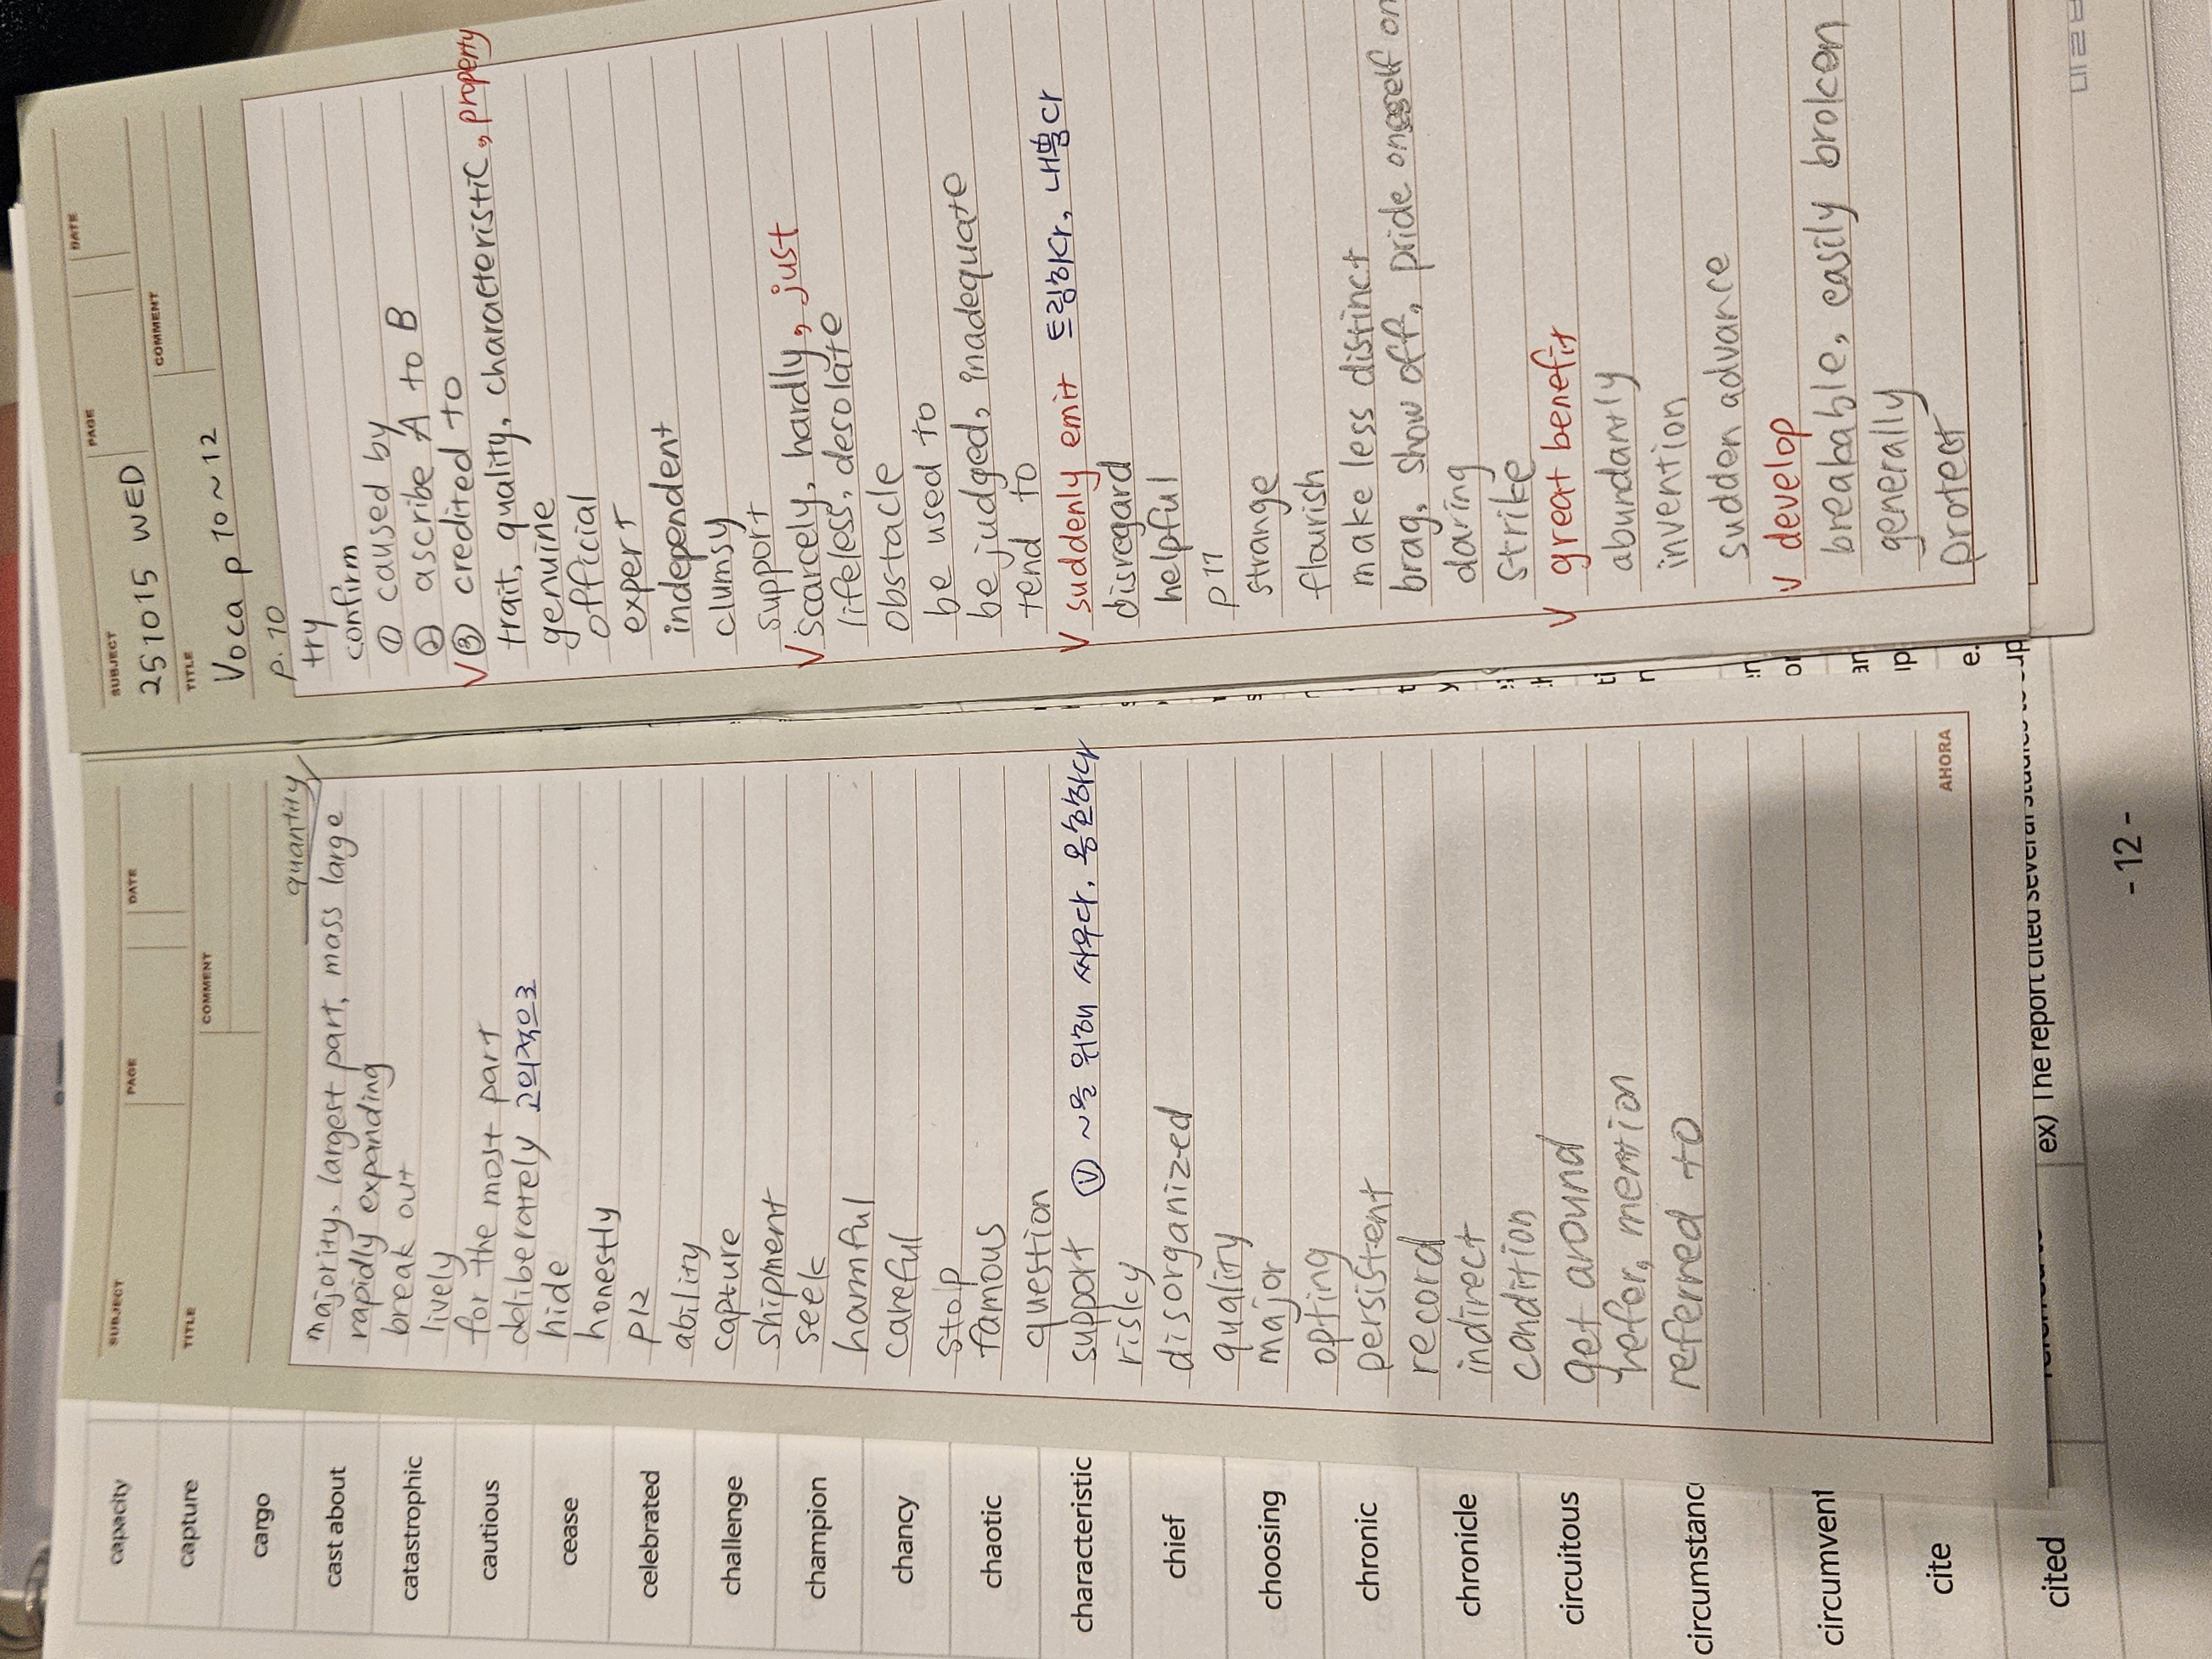 capacity
capture
cargo
cast about
catastrophic
cautious
cease
celebrated
challenge
champion
chancy
chaotic
characteristic
chief
choosing
chronic
chronicle
circuitous
circumstanc
circumvent
cite
cited
SUBJECT
PAGE
DATE
TITLE
COMMENT
quantity
majority, largest part, mass large
rapidly expanding
break out
lively
for the most part
deliberately 고의적으로
hide
honestly
P12
ability
capture
shipment
seek
harmful
careful
stop
famous
question
support ⓥ ~을 위해 싸우다, 옹호하다
risky
disorganized
quality
major
opting
persistent
record
indirect
condition
get around
refer, mention
referred to
AHORA
ex) The report cited several studies to sup
- 12 -
SUBJECT
PAGE
DATE
251015 WED
TITLE
COMMENT
Voca p 10~12
p.10
try
confirm
① caused by
② ascribe A to B
V ③ credited to
trait, quality, characteristic, property
genuine
official
expert
independent
clumsy
support
V scarcely, hardly, just
lifeless, desolate
obstacle
be used to
be judged, inadequate
tend to
V suddenly emit 트림하다, 내뿜다
disregard
helpful
P11
strange
flourish
make less distinct
brag, show off, pride oneself on
daring
strike
V great benefit
abundantly
invention
sudden advance
V develop
breakable, easily broken
generally
protect